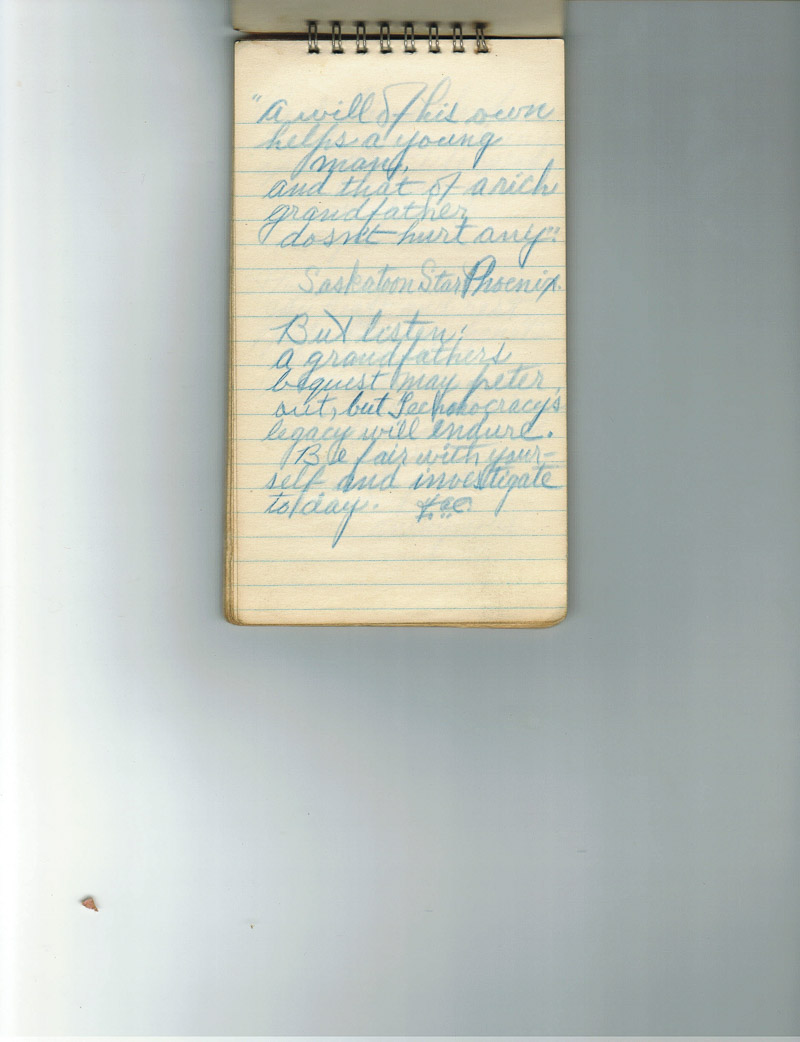 "A will of his own
helps a young
man,
and that of a rich
grandfather
dosn't hurt any".
Saskatoon Star Phoenix.
But listen;
A grandfathers
bequest may peter
out, but Technocracy's
legacy will endure.
Be fair with your-
self and investigate
to/day.